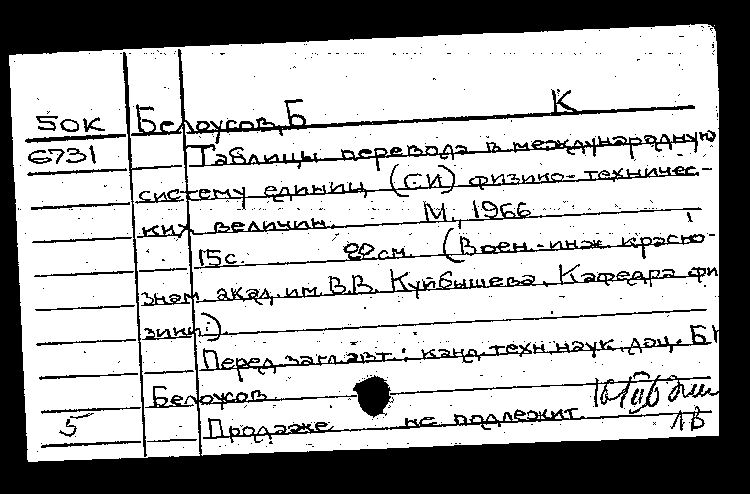 К
50К Белоусов, Б
6731 Таблицы перевода в международную
систему единиц (СИ) физико-техничес-
ких величин. М., 1966
15с. 22см. (Воен.-инж. красно-
знам. акад. им. В.В. Куйбышева. Кафедра фи
зики).
Перед загл. авт.: канд. техн. наук, доц. Б
Белоусов
5 Продаже не подлежит
ЛВ